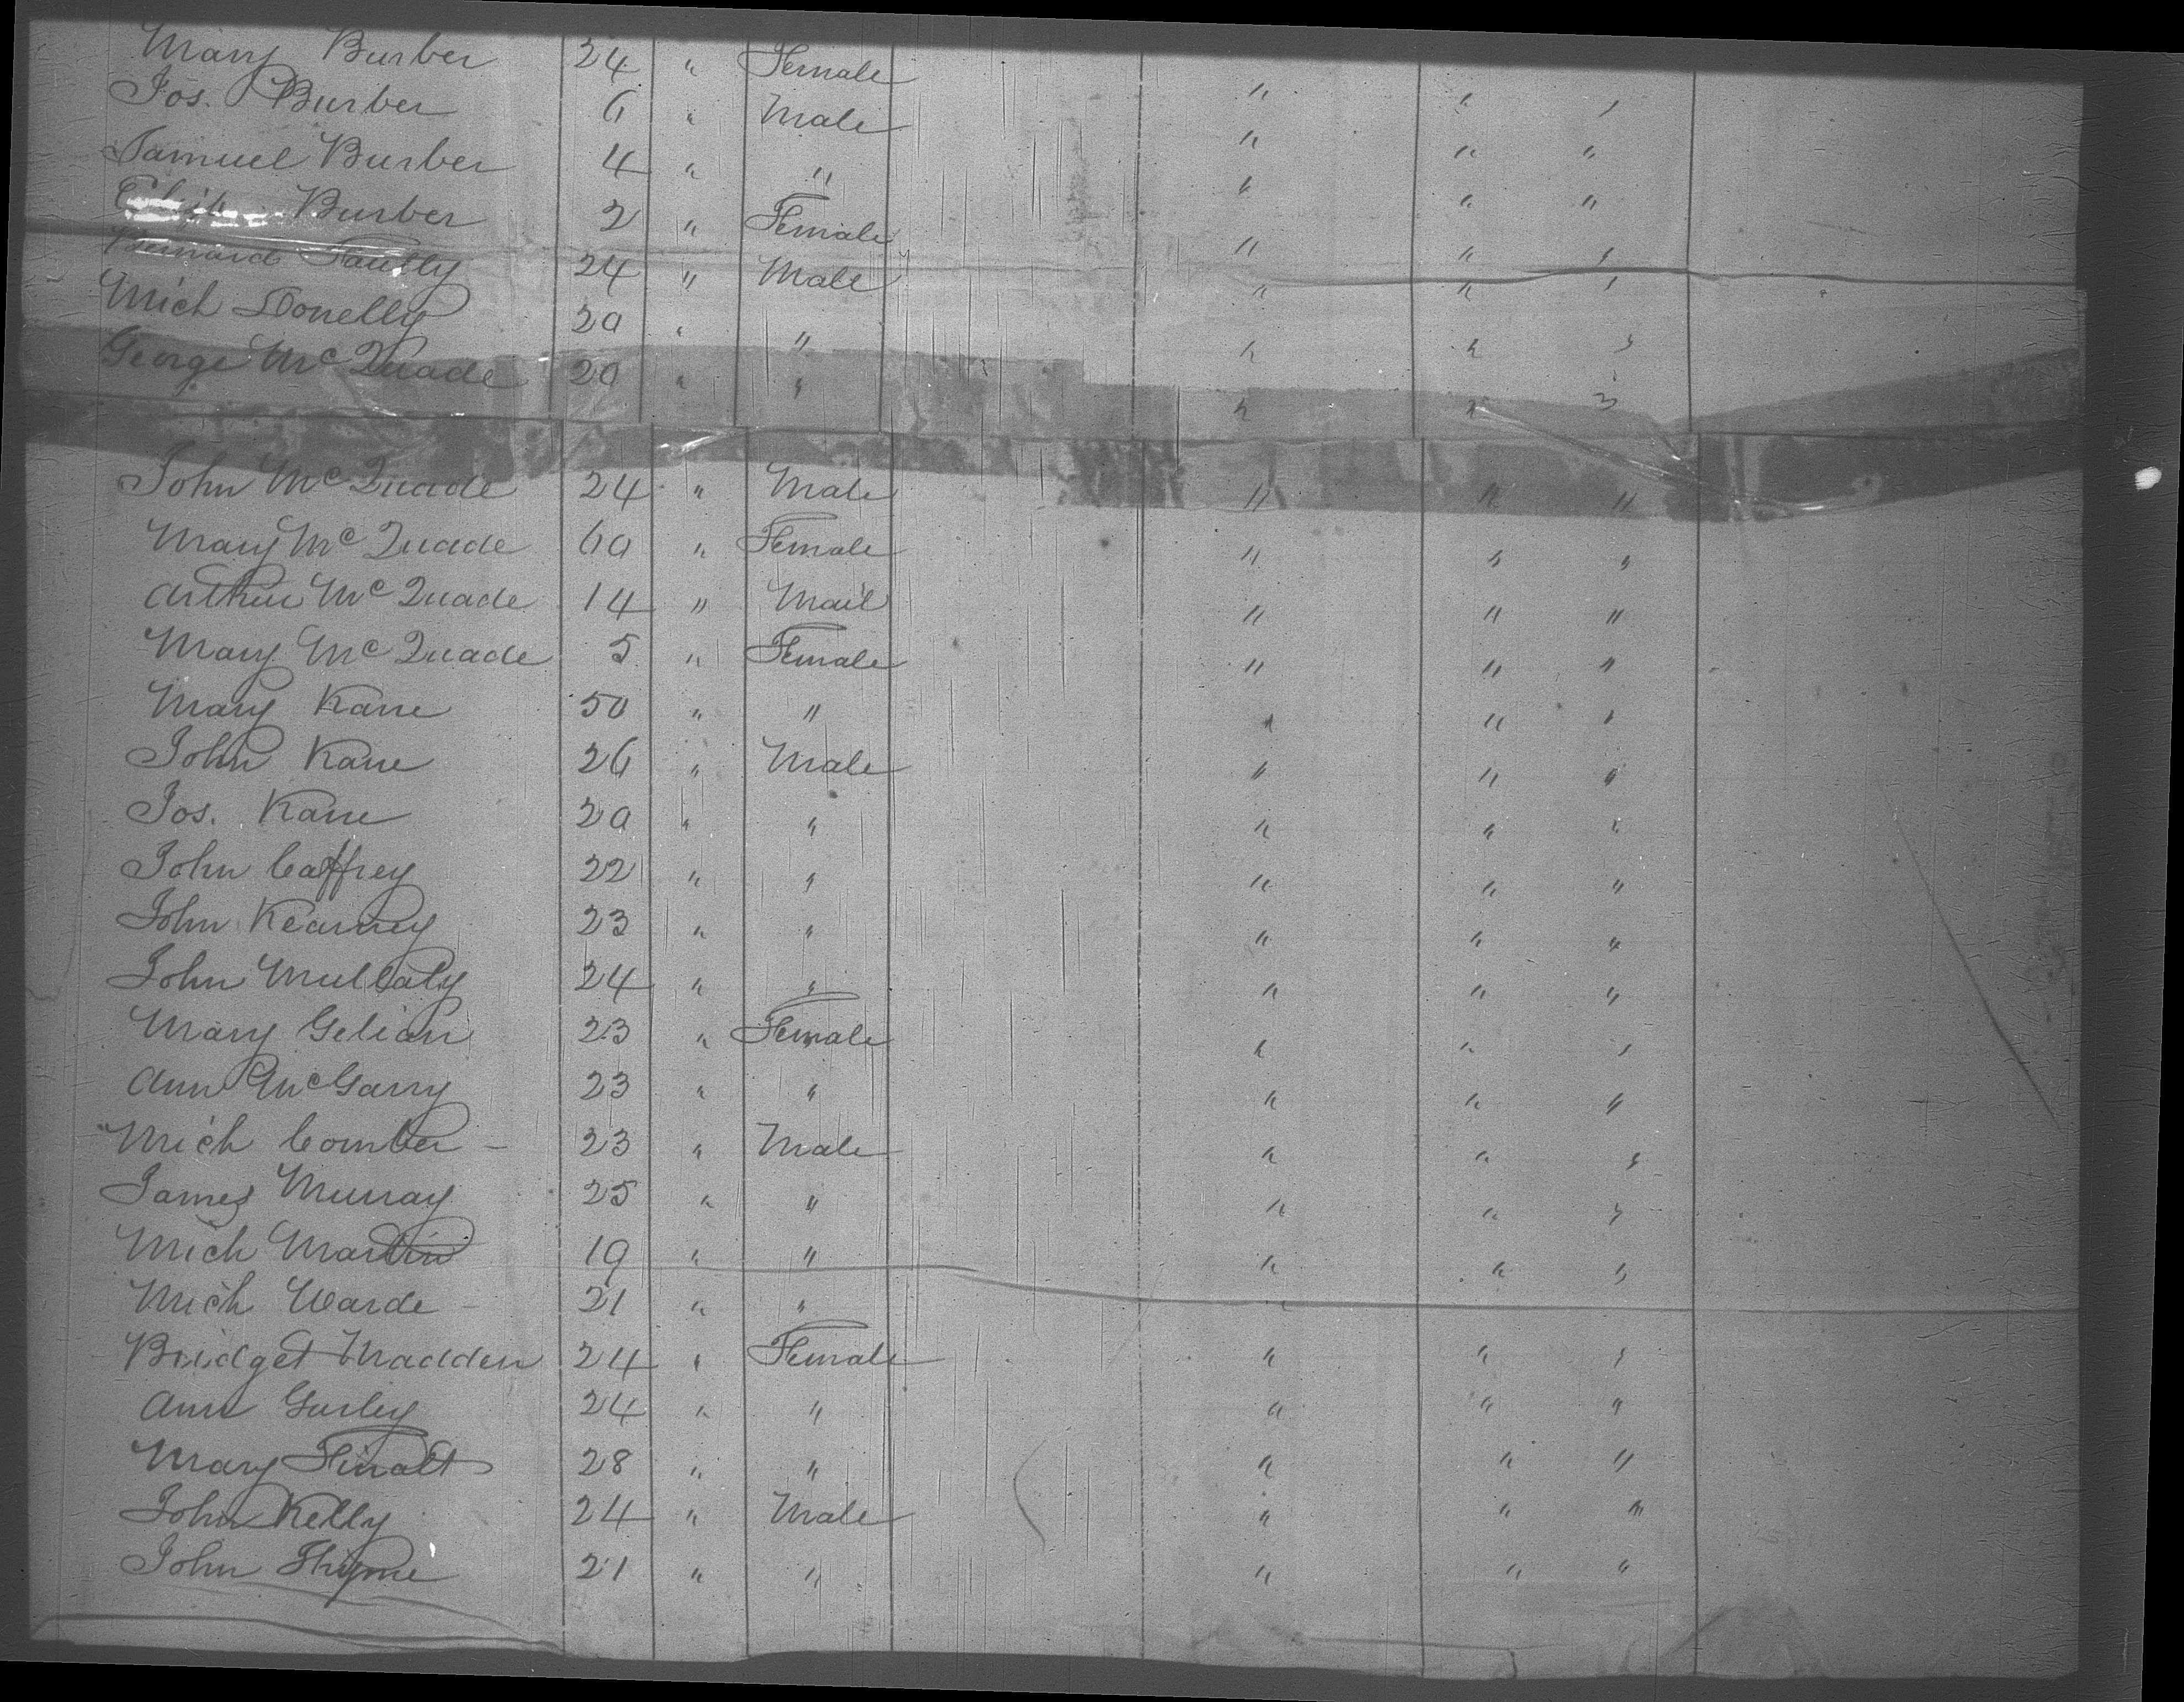 Mary Burber 24 " Female
Jos. Burber 6 " Male " " "
Samuel Burber 4 " " " " "
Burber 2 " Female " " "
Bernard 24 " Male " " "
Mich Donelly 20 " " " " "
George McQuade 20 " " " " "
John McQuade 24 " Male " " "
Mary McQuade 60 " Female " " "
Arthur McQuade 14 " Mail " " "
Mary McQuade 5 " Female " " "
Mary Kane 50 " " " " "
John Kane 26 " Male " " "
Jos. Kane 20 " " " " "
John Caffrey 22 " " " " "
John Kearney 23 " " " " "
John Mullaly 24 " " " " "
Mary Gelian 23 " Female " " "
Ann McGarry 23 " " " " "
Mich Comber - 23 " Male " " "
James Murray 25 " " " " "
Mich Martin 19 " " " " "
Mich Warde - 21 " " "
Bridget Madden 24 " Female " " "
Ann Gurley 24 " " " " "
Mary 28 " " " " "
John Kelly 24 " Male " " "
John Thyme 21 " " " " "